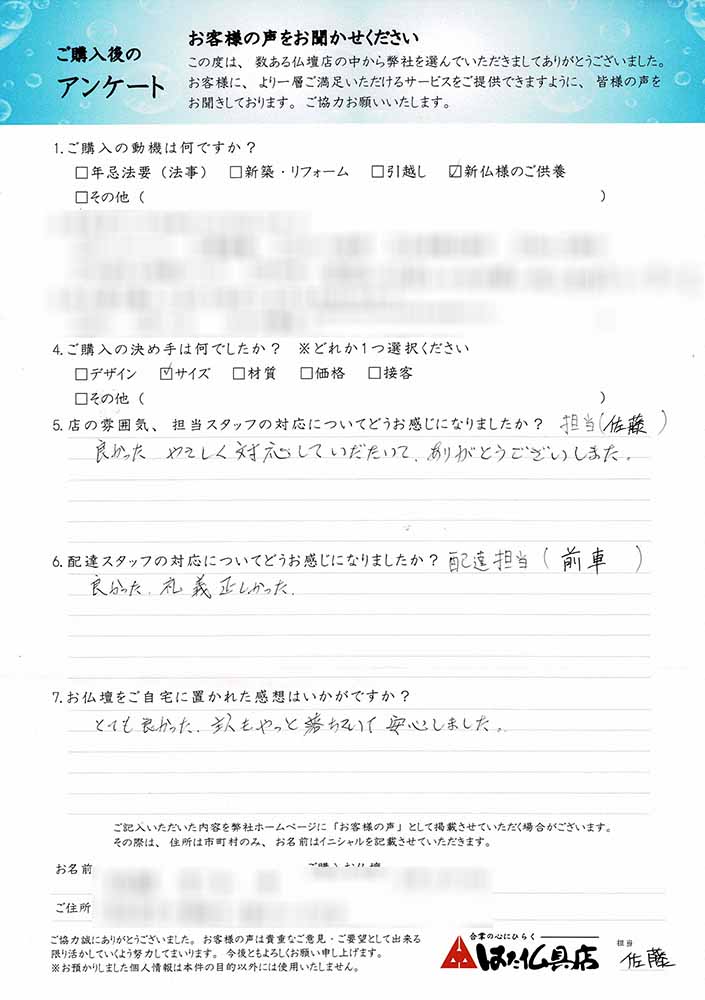 ご購入後の
アンケート
お客様の声をお聞かせください
この度は、数ある仏壇店の中から弊社を選んでいただきましてありがとうございました。
お客様に、より一層ご満足いただけるサービスをご提供できますように、皆様の声を
お聞きしております。ご協力お願いいたします。
1.ご購入の動機は何ですか？
□年忌法要（法事） □新築・リフォーム □引越し ☑新仏様のご供養
□その他（ ）
4.ご購入の決め手は何でしたか？ ※どれか1つ選択ください
□デザイン ☑サイズ □材質 □価格 □接客
□その他（ ）
5.店の雰囲気、担当スタッフの対応についてどうお感じになりましたか？ 担当（佐藤）
良かった やさしく対応していだたいて、ありがとうございしまた。
6.配達スタッフの対応についてどうお感じになりましたか？ 配達担当（前車）
良かった、礼義正しかった、
7.お仏壇をご自宅に置かれた感想はいかがですか？
とても良かった、主人もやっと落ちついて安心しました。
ご記入いただいた内容を弊社ホームページに「お客様の声」として掲載させていただく場合がございます。
その際は、住所は市町村のみ、お名前はイニシャルを記載させていただきます。
お名前
ご住所
ご協力誠にありがとうございました。お客様の声は貴重なご意見・ご要望として出来る
限り活かしていくよう努力してまいります。今後ともよろしくお願い申し上げます。
※お預かりしました個人情報は本件の目的以外には使用いたしません。
合掌の心にひらく
はた仏具店
担当
佐藤